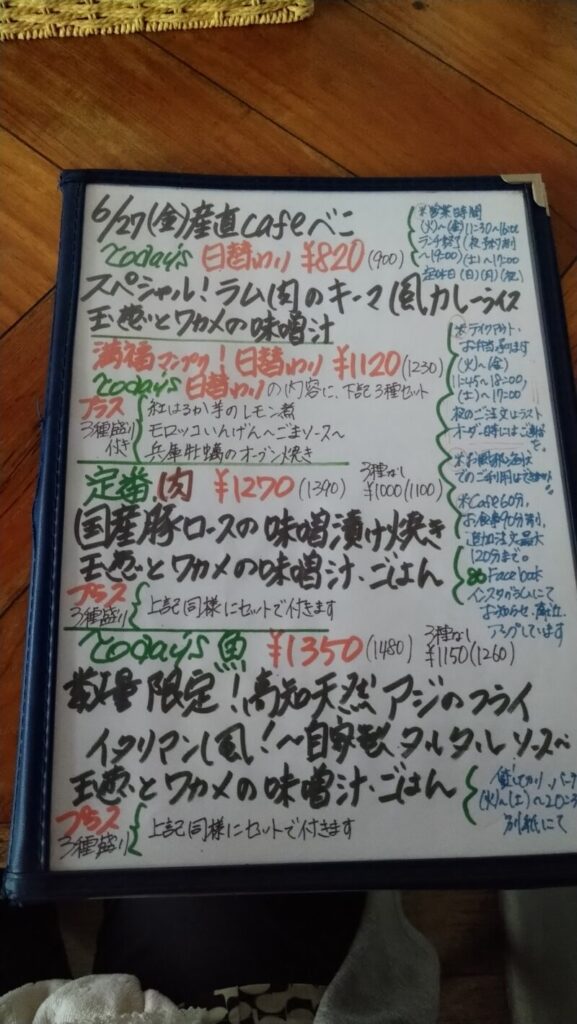 6/27(金)産直cafeべこ
Today's 日替わり ¥820(900)
スペシャル!ラム肉のキーマ風カレーライス
玉葱とワカメの味噌汁
満福マンプク!日替わり ¥1120(1230)
Today's 日替わりの内容に、下記3種セット
プラス
3種盛り
付き
紅はるか芋のレモン煮
モロッコいんげん〜ごまソース〜
兵庫牡蠣のオーブン焼き
定番 肉 ¥1270(1390)
3種なし
¥1000(1100)
国産豚ロースの味噌漬け焼き
玉葱とワカメの味噌汁・ごはん
プラス
3種盛り
上記同様にセットで付きます
Today's 魚 ¥1350(1480)
3種なし
¥1150(1260)
数量限定!高知天然アジのフライ
イタリアン風!〜自家製タルタルソース〜
玉葱とワカメの味噌汁・ごはん
プラス
3種盛り
上記同様にセットで付きます
※営業時間
(火)〜(金)11:30〜18:00
ランチ終了
〜19:00 (土)〜17:00
定休日(日)(月)(祝)
※テイクアウト、
お弁当承ります
(火)〜(金)
11:45〜18:00、
(土)〜17:00
夜のご注文はラスト
オーダー時にご連絡を
でのご利用はできません。
※Cafe60分、
お食事90分制、
追加注文最大
120分まで。
Facebook
インスタグラムにて
お知らせ、
アップしています
貸し切り、パーティ
(火)〜(土)〜20:
別紙にて